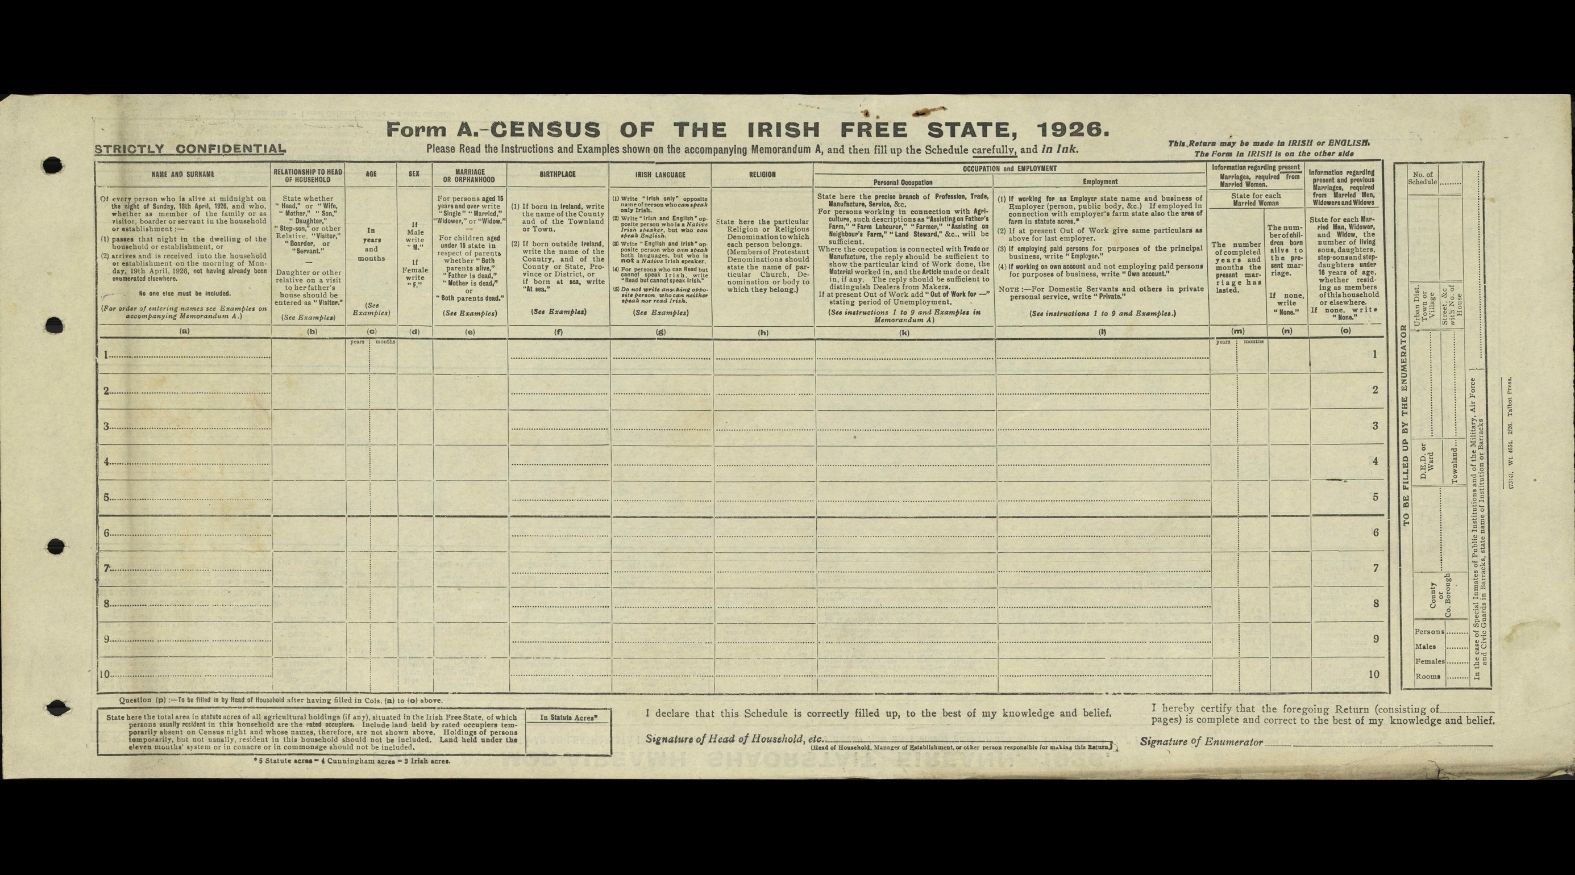 Form A.-CENSUS OF THE IRISH FREE STATE, 1926.
STRICTLY CONFIDENTIAL
Please Read the Instructions and Examples shown on the accompanying Memorandum A, and then fill up the Schedule carefully, and In Ink.
This Return may be made in IRISH or ENGLISH.
The Form in IRISH is on the other side
NAME AND SURNAME
Of every person who is alive at midnight on
the night of Sunday, 18th April, 1926, and who,
whether as member of the family or as
visitor, boarder or servant in the household
or establishment :—
(1) passes that night in the dwelling of the
household or establishment, or
(2) arrives and is received into the household
or establishment on the morning of Mon-
day, 19th April, 1926, not having already been
enumerated elsewhere.
No one else must be included.
(For order of entering names see Examples on
accompanying Memorandum A.)
(a)
RELATIONSHIP TO HEAD
OF HOUSEHOLD
State whether
"Head," or "Wife,
"Mother," "Son,"
"Daughter,"
"Step-son," or other
Relative, "Visitor,"
"Boarder, or
"Servant."
—
Daughter or other
relative on a visit
to her father's
house should be
entered as "Visitor."
(See Examples)
(b)
AGE
In
years
and
months
(See
Examples)
(c)
SEX
If
Male
write
"M."
If
Female
write
"F."
(d)
MARRIAGE
OR ORPHANHOOD
For persons aged 15
years and over write
"Single" "Married,"
"Widower," or "Widow."
—
For children aged
under 15 state in
respect of parents
whether "Both
parents alive,"
"Father is dead,"
"Mother is dead,"
or
"Both parents dead."
(See Examples)
(e)
BIRTHPLACE
(1) If born in Ireland, write
the name of the County
and of the Townland
or Town.
(2) If born outside Ireland,
write the name of the
Country, and of the
County or State, Pro-
vince or District, or
if born at sea, write
"At sea."
(See Examples)
(f)
IRISH LANGUAGE
(1) Write "Irish only" opposite
name of person who can speak
only Irish.
(2) Write "Irish and English" op-
posite person who is a Native
Irish speaker, but who can
speak English.
(3) Write "English and Irish" op-
posite person who can speak
both languages, but who is
not a Native Irish speaker.
(4) For persons who can Read but
cannot speak Irish, write
"Read but cannot speak Irish."
(5) Do not write anything oppo-
site person, who can neither
speak nor read Irish.
(See Examples)
(g)
RELIGION
State here the particular
Religion or Religious
Denomination to which
each person belongs.
(Members of Protestant
Denominations should
state the name of par-
ticular Church, De-
nomination or body to
which they belong.)
(h)
OCCUPATION and EMPLOYMENT
Personal Occupation
State here the precise branch of Profession, Trade,
Manufacture, Service, &c.
For persons working in connection with Agri-
culture, such descriptions as "Assisting on Father's
Farm," "Farm Labourer," "Farmer," "Assisting on
Neighbour's Farm," "Land Steward," &c., will be
sufficient.
Where the occupation is connected with Trade or
Manufacture, the reply should be sufficient to
show the particular kind of Work done, the
Material worked in, and the Article made or dealt
in, if any. The reply should be sufficient to
distinguish Dealers from Makers.
If at present Out of Work add "Out of Work for —"
stating period of Unemployment,
(See instructions 1 to 9 and Examples in
Memorandum A)
(k)
Employment
(1) If working for an Employer state name and business of
Employer (person, public body, &c.) If employed in
connection with employer's farm state also the area of
farm in statute acres."
(2) If at present Out of Work give same particulars as
above for last employer.
(3) If employing paid persons for purposes of the principal
business, write "Employer."
(4) If working on own account and not employing paid persons
for purposes of business, write "Own account."
NOTE :—For Domestic Servants and others in private
personal service, write "Private."
(See instructions 1 to 9 and Examples.)
(l)
Information regarding present
Marriages, required from
Married Women.
State for each
Married Woman
The number
of completed
years and
months the
present mar-
riage has
lasted.
(m)
The num-
ber of chil-
dren born
alive to
the pre-
sent mar-
riage.
If none,
write
"None."
(n)
Information regarding
present and previous
Marriages, required
from Married Men,
Widowers and Widows
State for each Mar-
ried Man, Widower,
and Widow, the
number of living
sons, daughters,
step-sons and step-
daughters under
16 years of age,
whether resid-
ing as members
of this household
or elsewhere.
If none, write
"None."
(o)
years months
years months
1 1
2 2
3 3
4 4
5 5
6 6
7 7
8 8
9 9
10 10
TO BE FILLED UP BY THE ENUMERATOR
No. of
Schedule
Urban Dist.
Town or
Village
Street, &c
with No. of
House
D.E.D. or
Ward
Townland
County
or
Co. Borough
Persons
Males
Females
Rooms
In the case of Special Inmates of Public Institutions and of the Military, Air Force
and Civic Guards in Barracks, state name of Institution or Barracks
Talbot Press.
Question (p) :—To be filled in by Head of Household after having filled in Cols. (a) to (o) above.
State here the total area in statute acres of all agricultural holdings (if any), situated in the Irish Free State, of which
persons usually resident in this household are the rated occupiers. Include land held by rated occupiers tem-
porarily absent on Census night and whose names, therefore, are not shown above. Holdings of persons
temporarily, but not usually, resident in this household should not be included. Land held under the
eleven months' system or in conacre or in commonage should not be included.
In Statute Acres*
* 5 Statute acres = 4 Cunningham acres = 3 Irish acres.
I declare that this Schedule is correctly filled up, to the best of my knowledge and belief.
Signature of Head of Household, etc.
(Head of Household, Manager of Establishment, or other person responsible for making this Return)
I hereby certify that the foregoing Return (consisting of
pages) is complete and correct to the best of my knowledge and belief.
Signature of Enumerator